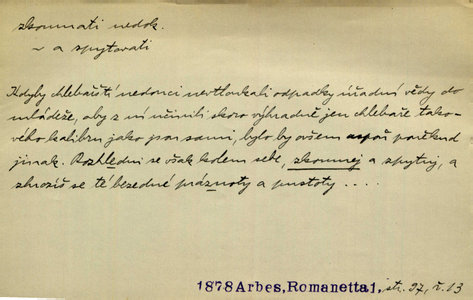 zkoumati nedok.
~ a zpytovati
Kdyby chlebařští nedouci nevtloukali odpadky úřadní vědy do
mládeže, aby z ní učinili skoro výhradně jen chlebaře tako-
vého kalibru jako jsou sami, bylo by ovšem aspoň poněkud
jinak. Rozhledni se však kolem sebe, zkoumej a zpytuj, a
zhrozíš se té bezedné práznoty a pustoty ....
1878 Arbes, Romanetta 1, str. 97, ř. 13